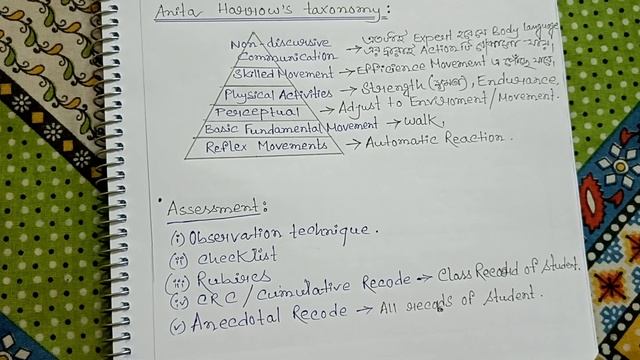 Anita Harrow's taxonomy:
Non-discursive Communication → Expert Body language Action
Skilled Movement → Efficience Movement
Physical Activities → Strength, Endurance,
Perceptual → Adjust to Enviroment/Movement.
Basic Fundamental Movement → walk,
Reflex Movements → Automatic Reaction.
Assessment:
(i) Observation technique.
(ii) Checklist
(iii) Rubires
(iv) CRC / Cumulative Recode → Class Record of Student.
(v) Anecdotal Recode → All recods of student.